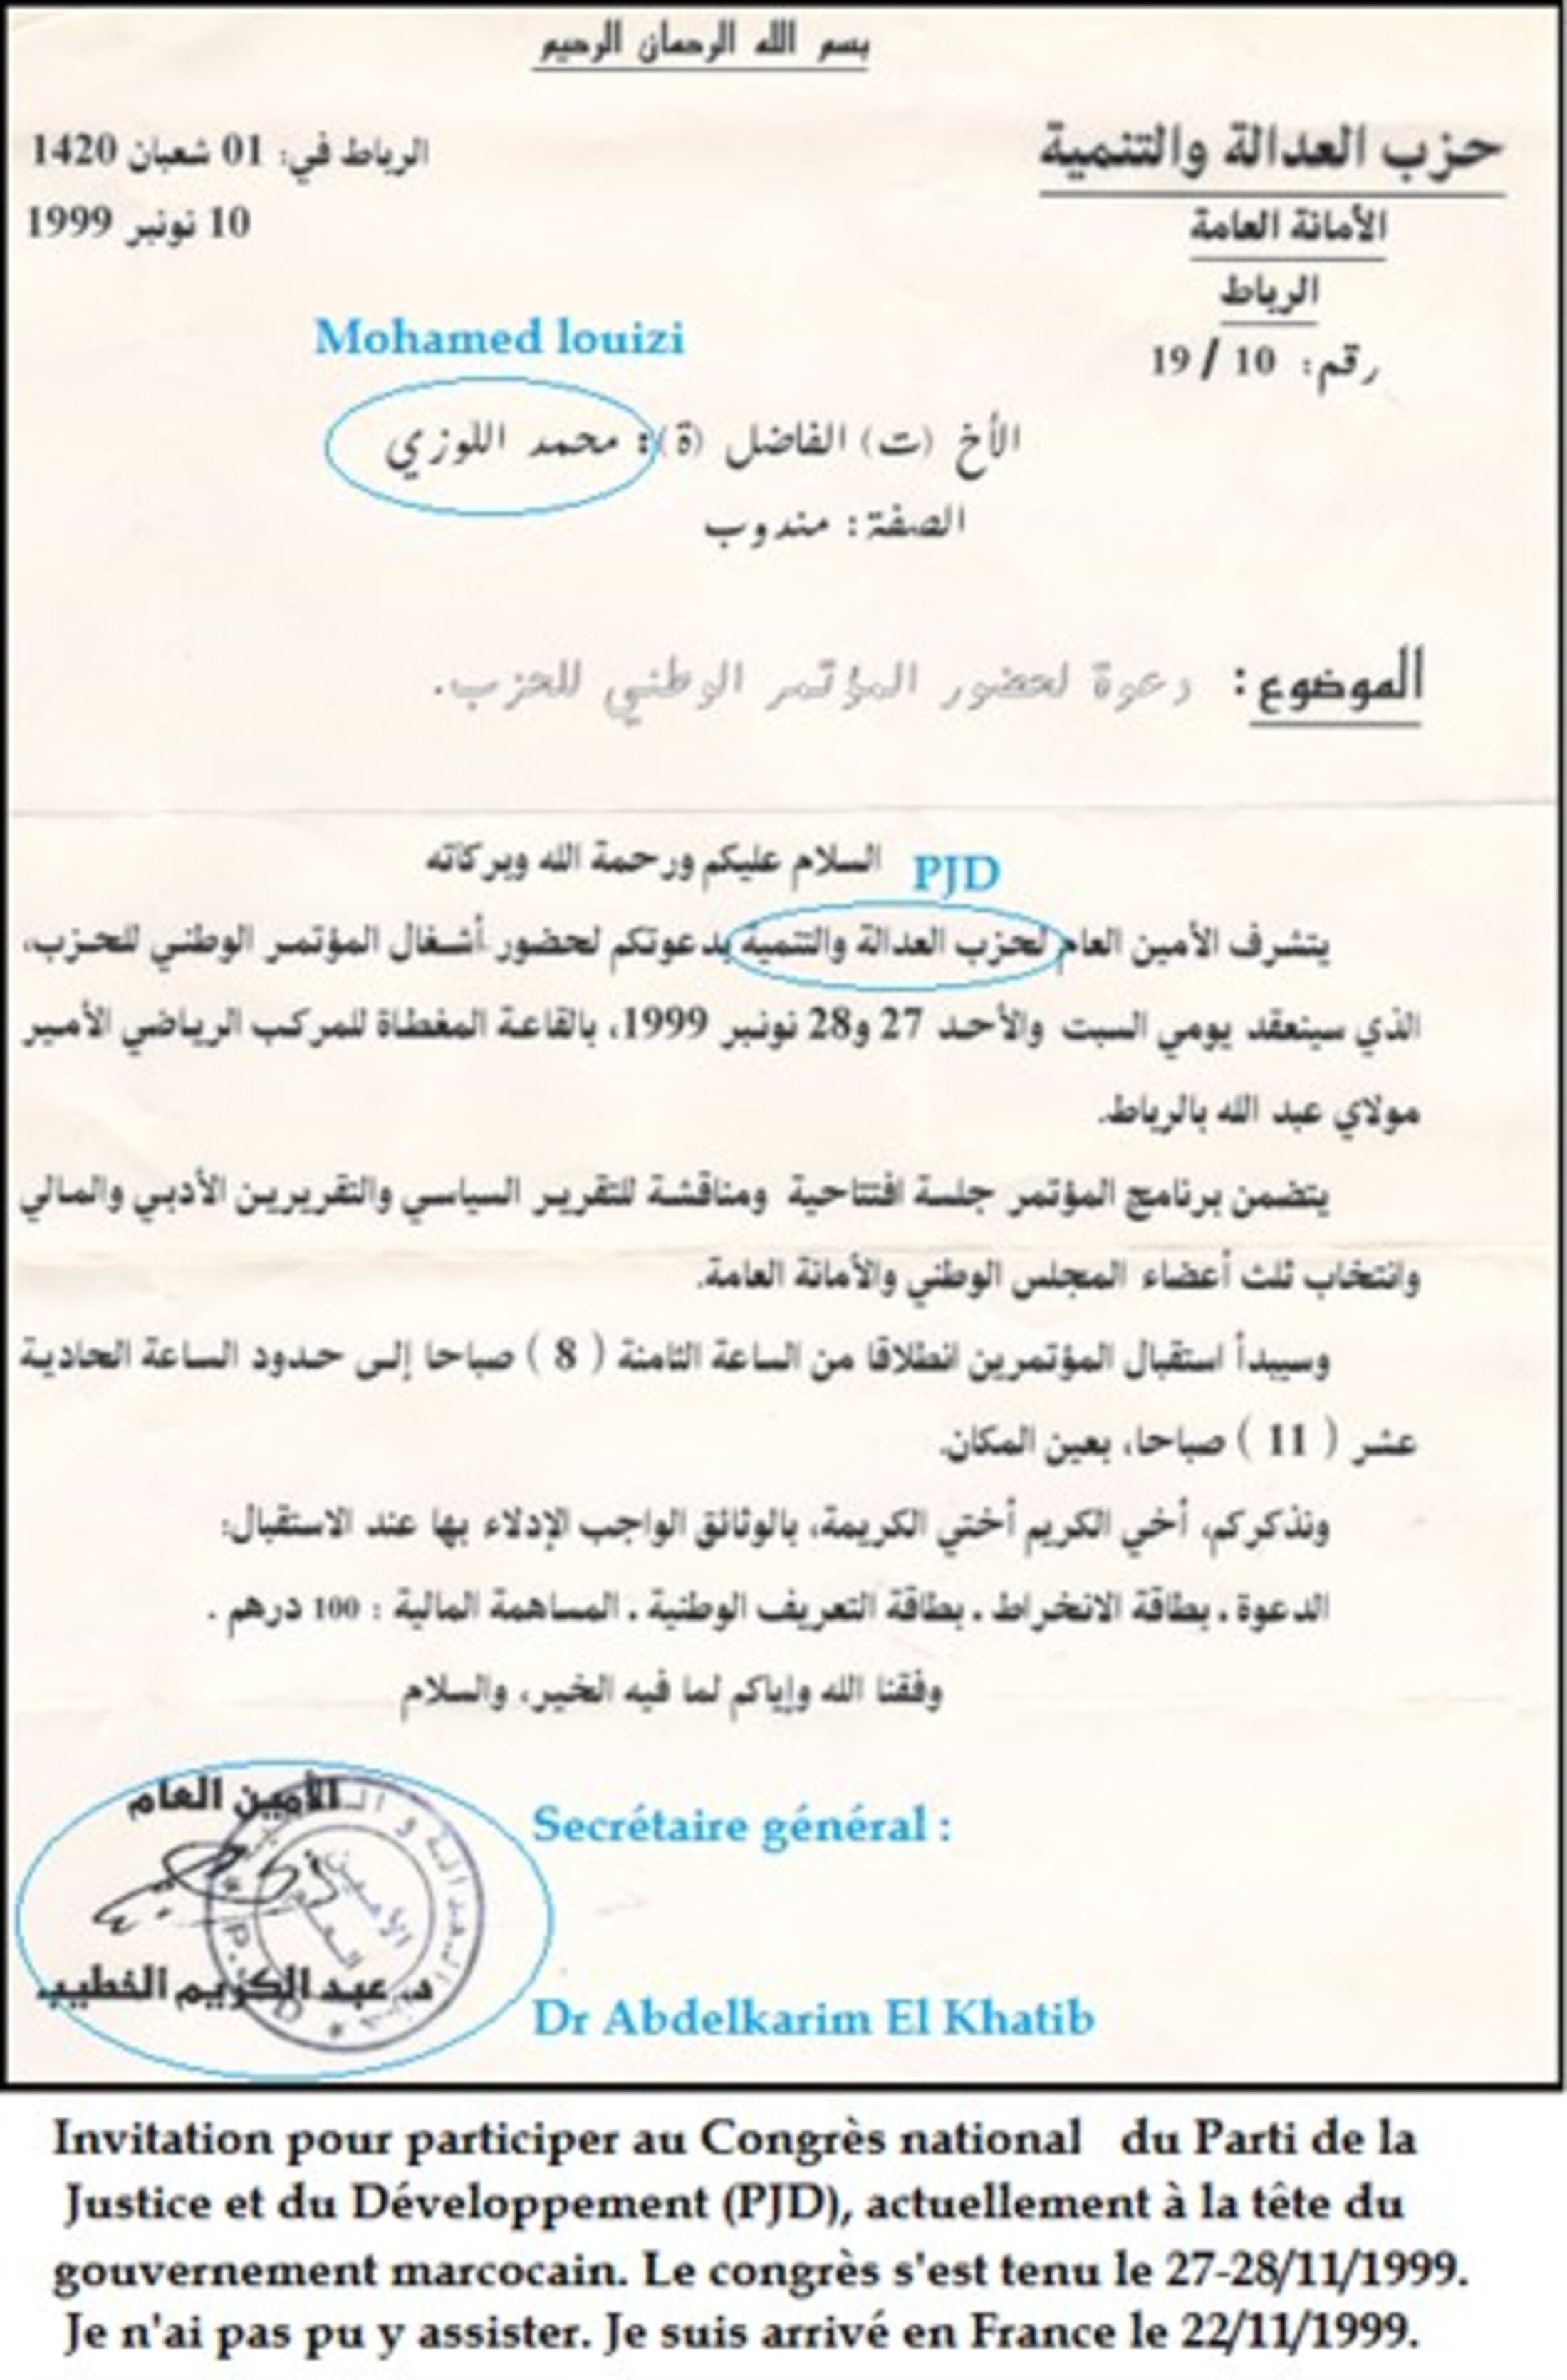 بسم الله الرحمان الرحيم
حزب العدالة والتنمية
الأمانة العامة
الرباط
رقم: 10 / 19
الرباط في: 01 شعبان 1420
10 نونبر 1999
Mohamed louizi
الأخ (ت) الفاضل (ة): محمد اللوزي
الصفة: مندوب
الموضوع: دعوة لحضور المؤتمر الوطني للحزب.
السلام عليكم ورحمة الله وبركاته
PJD
يتشرف الأمين العام لحزب العدالة والتنمية بدعوتكم لحضور أشغال المؤتمر الوطني للحزب،
الذي سينعقد يومي السبت والأحد 27 و28 نونبر 1999، بالقاعة المغطاة للمركب الرياضي الأمير
مولاي عبد الله بالرباط.
يتضمن برنامج المؤتمر جلسة افتتاحية ومناقشة للتقرير السياسي والتقريرين الأدبي والمالي
وانتخاب ثلث أعضاء المجلس الوطني والأمانة العامة.
وسيبدأ استقبال المؤتمرين انطلاقا من الساعة الثامنة ( 8 ) صباحا إلى حدود الساعة الحادية
عشر ( 11 ) صباحا، بعين المكان.
ونذكركم، أخي الكريم أختي الكريمة، بالوثائق الواجب الإدلاء بها عند الاستقبال:
الدعوة . بطاقة الانخراط . بطاقة التعريف الوطنية . المساهمة المالية : 100 درهم .
وفقنا الله وإياكم لما فيه الخير، والسلام
الأمين العام
د. عبد الكريم الخطيب
الأمين
العام
Secrétaire général :
Dr Abdelkarim El Khatib
Invitation pour participer au Congrès national du Parti de la
Justice et du Développement (PJD), actuellement à la tête du
gouvernement marcocain. Le congrès s'est tenu le 27-28/11/1999.
Je n'ai pas pu y assister. Je suis arrivé en France le 22/11/1999.